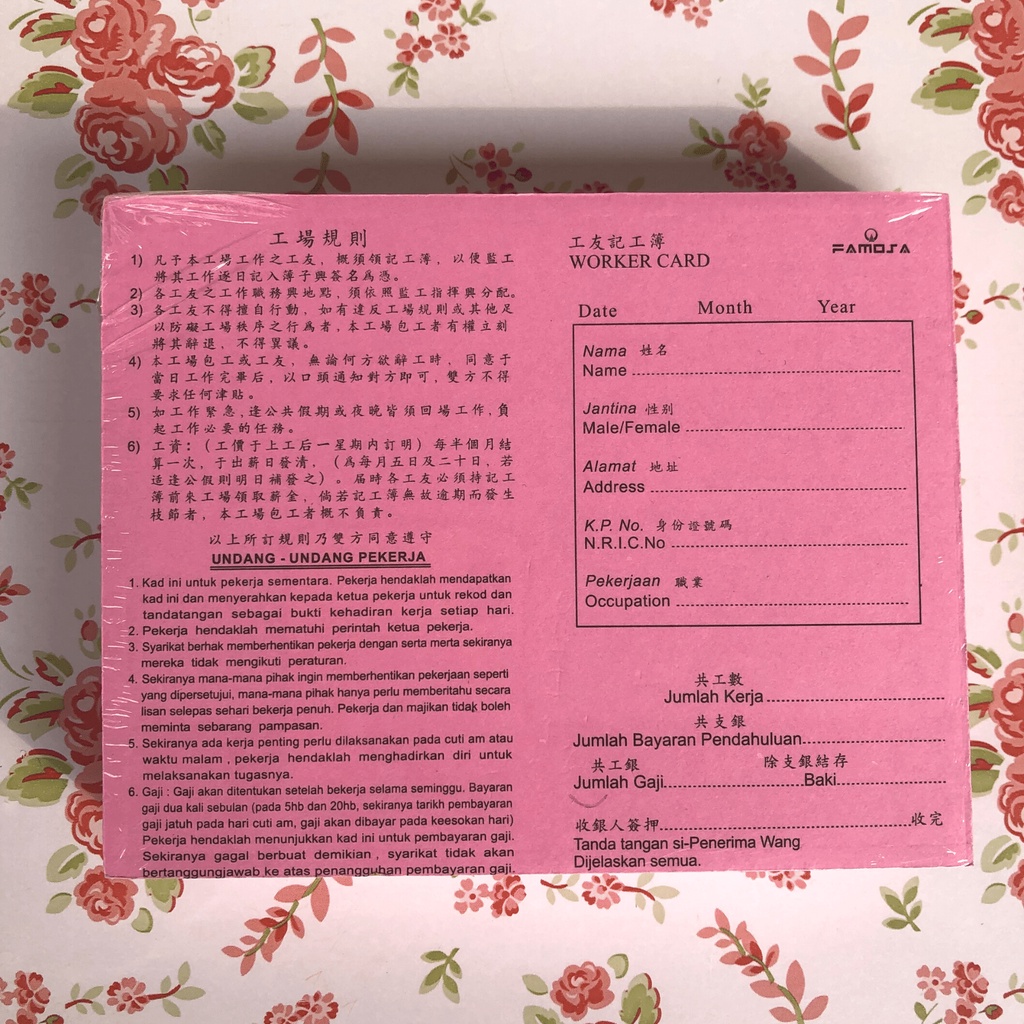 工場規則
1) 凡予本工場工作之工友，概須領記工簿，以便監工
將其工作逐日記入簿子興簽名為憑。
2) 各工友之工作職務興地點，須依照監工指揮興分配。
3) 各工友不得擅自行動，如有違反工場規則或其他足
以防礙工場秩序之行為者，本工場包工者有權立刻
將其辭退，不得異議。
4) 本工場包工或工友，無論何方欲辭工時，同意于
當日工作完畢后，以口頭通知對方即可，雙方不得
要求任何津貼。
5) 如工作緊急，逢公共假期或夜晚皆須回場工作，負
起工作必要的任務。
6) 工資：（工價于上工后一星期內訂明）每半個月結
算一次，于出薪日發清，（為每月五日及二十日，若
適逢公假則明日補發之）。屆時各工友必須持記工
簿前來工場領取薪金，倘若記工簿無故逾期而發生
枝節者，本工場包工者概不負責。
以上所訂規則乃雙方同意遵守
UNDANG - UNDANG PEKERJA
1. Kad ini untuk pekerja sementara. Pekerja hendaklah mendapatkan
kad ini dan menyerahkan kepada ketua pekerja untuk rekod dan
tandatangan sebagai bukti kehadiran kerja setiap hari.
2. Pekerja hendaklah mematuhi perintah ketua pekerja.
3. Syarikat berhak memberhentikan pekerja dengan serta merta sekiranya
mereka tidak mengikuti peraturan.
4. Sekiranya mana-mana pihak ingin memberhentikan pekerjaan seperti
yang dipersetujui, mana-mana pihak hanya perlu memberitahu secara
lisan selepas sehari bekerja penuh. Pekerja dan majikan tidak boleh
meminta sebarang pampasan.
5. Sekiranya ada kerja penting perlu dilaksanakan pada cuti am atau
waktu malam , pekerja hendaklah menghadirkan diri untuk
melaksanakan tugasnya.
6. Gaji : Gaji akan ditentukan setelah bekerja selama seminggu. Bayaran
gaji dua kali sebulan (pada 5hb dan 20hb, sekiranya tarikh pembayaran
gaji jatuh pada hari cuti am, gaji akan dibayar pada keesokan hari)
Pekerja hendaklah menunjukkan kad ini untuk pembayaran gaji.
Sekiranya gagal berbuat demikian , syarikat tidak akan
bertanggungjawab ke atas penangguhan pembayaran gaji.
工友記工簿
WORKER CARD
FAMOSA
Date Month Year
Nama 姓名
Name
Jantina 性別
Male/Female
Alamat 地址
Address
K.P. No. 身份證號碼
N.R.I.C.No
Pekerjaan 職業
Occupation
共工數
Jumlah Kerja
共支銀
Jumlah Bayaran Pendahuluan
共工銀 除支銀結存
Jumlah Gaji Baki
收銀人簽押 收完
Tanda tangan si-Penerima Wang
Dijelaskan semua.